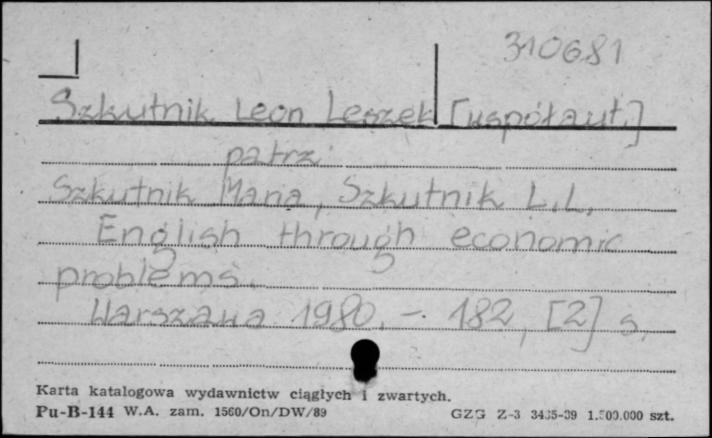 310681
Szkutnik Leon Leszek [współaut.]
patrz
Szkutnik Maria, Szkutnik L.L.
English through economic
problems.
Warszawa 1980. – 182, [2] s.
Karta katalogowa wydawnictw ciągłych i zwartych.
Pu-B-144 W.A. zam. 1560/On/DW/89 GZG Z-3 3435-89 1.500.000 szt.